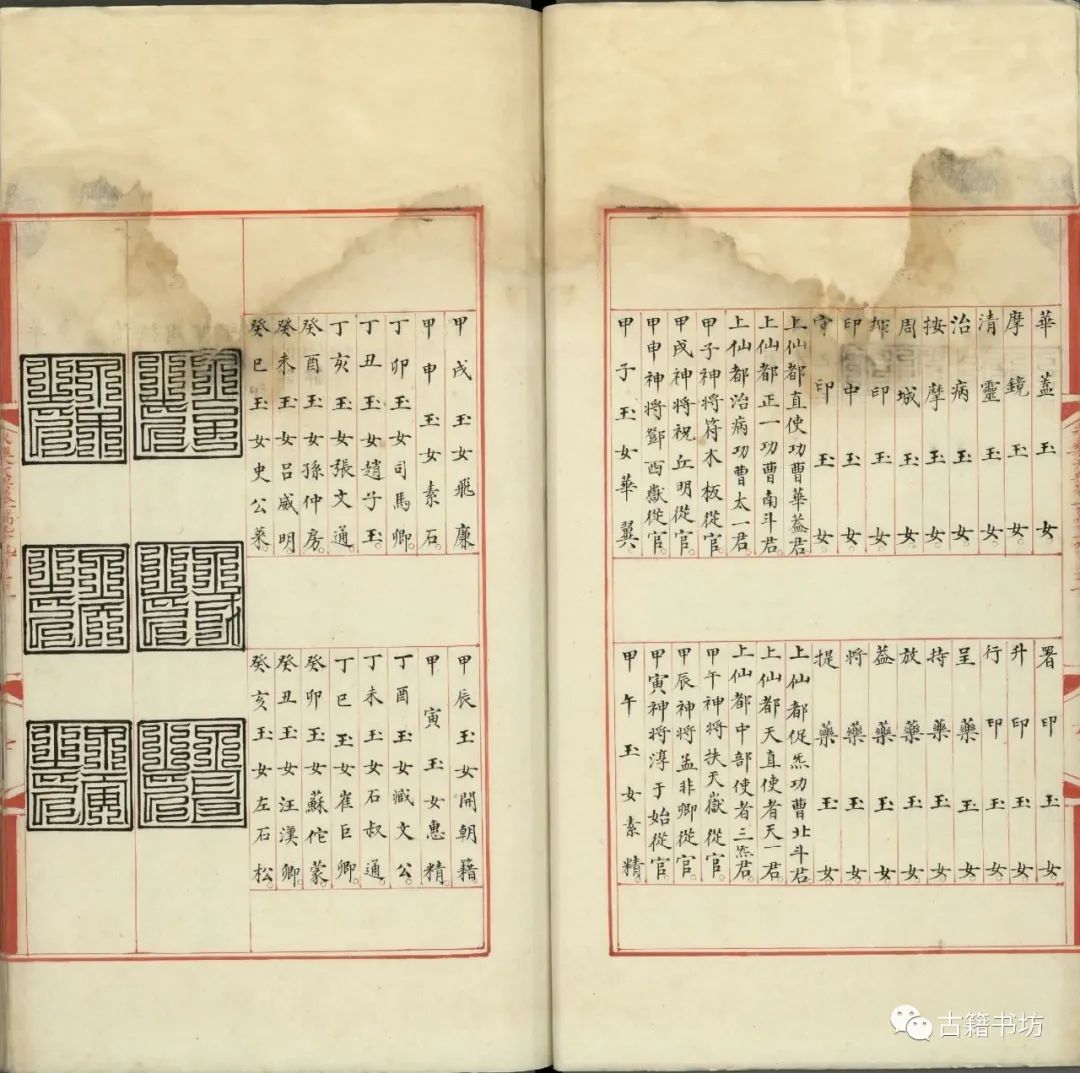 華蓋玉女
摩鏡玉女
清靈玉女
治病玉女
按摩玉女
周城玉女
揮印玉女
印中玉女
守印玉女
上仙都直使功曹華蓋君
上仙都正一功曹南斗君
上仙都治病功曹太一君
甲子神將符木板從官
甲戌神將祝丘明從官
甲申神將鄧酉嶽從官
甲子玉女華翼
署印玉女
升印玉女
行印玉女
呈藥玉女
持藥玉女
放藥玉女
益藥玉女
將藥玉女
提藥玉女
上仙都促炁功曹北斗君
上仙都天直使者天一君
上仙都中部使者三炁君
甲午神將扶天嶽從官
甲辰神將孟非卿從官
甲寅神將淳于始從官
甲午玉女素精
甲戌玉女飛廉
甲申玉女素石
丁卯玉女司馬卿
丁丑玉女趙子玉
丁亥玉女張文通
癸酉玉女孫仲房
癸未玉女呂威明
癸巳玉女史公
甲辰玉女開朝籍
甲寅玉女惠精
丁酉玉女臧文公
丁未玉女石叔通
丁巳玉女崔巨卿
癸卯玉女蘇佗蒙
癸丑玉女汪漢卿
癸亥玉女左石松
古籍书坊